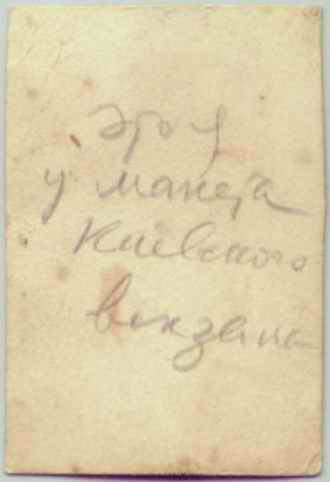 Это я
у макета
Киевского
вокзала